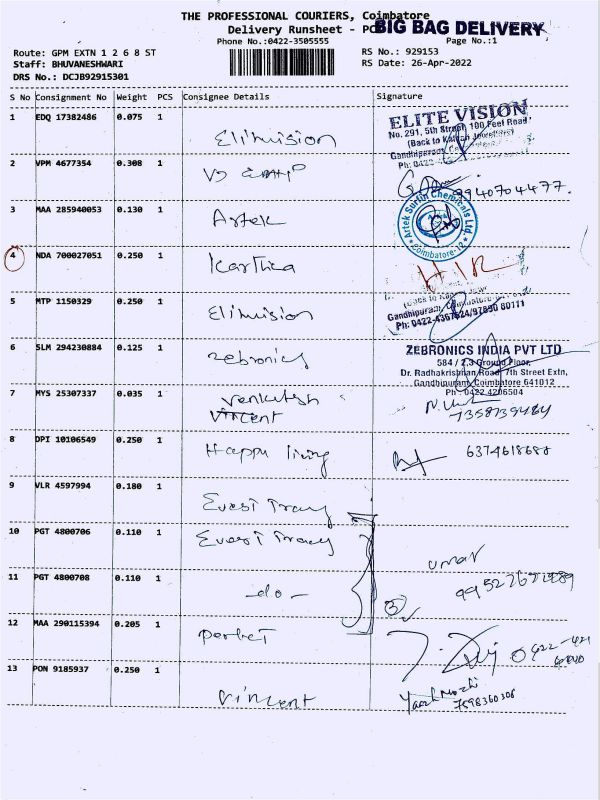 THE PROFESSIONAL COURIERS, Coimbatore
Delivery Runsheet - PO
BIG BAG DELIVERY
Phone No.:0422-3505555
Page No.:1
Route: GPM EXTN 1 2 6 8 ST
RS No.: 929153
Staff: BHUVANESHWARI
RS Date: 26-Apr-2022
DRS No.: DCJB92915301
S No Consignment No Weight PCS Consignee Details Signature
1 EDQ 17382486 0.075 1 Elitivision
ELITE VISION
No. 291, 5th Street, 100 Feet Road
(Back to Kalyan Jewellers)
Gandhipuram,
Ph: 0422
2 VPM 4677354 0.308 1 VJ
9940704477.
3 MAA 285940053 0.130 1 Artek
Artek Surfin Chemicals Ltd.
Coimbatore-12
4 NDA 700027051 0.250 1 Karthica
5 MTP 1150329 0.250 1 Elitivision
Gandhipuram, Coimbatore
Ph: 0422-4367624/97890 80111
6 SLM 294230884 0.125 1 Zebronics
ZEBRONICS INDIA PVT LTD
584 / 2,3 Ground Floor,
Dr. Radhakrishnan Road, 7th Street Extn,
Gandhipuram, Coimbatore 641012
Ph: 0422 4206504
7 MYS 25307337 0.035 1 Venkatesh
Vincent
7358739464
8 DPI 10106549 0.250 1 Happy living
6374618688
9 VLR 4597994 0.180 1 Evest Tracy
10 PGT 4800706 0.110 1 Evest Tracy
umar
11 PGT 4800708 0.110 1 -do-
3
12 MAA 290115394 0.205 1 perfet
0422-421
13 PON 9185937 0.250 1 Vincent
7598360306